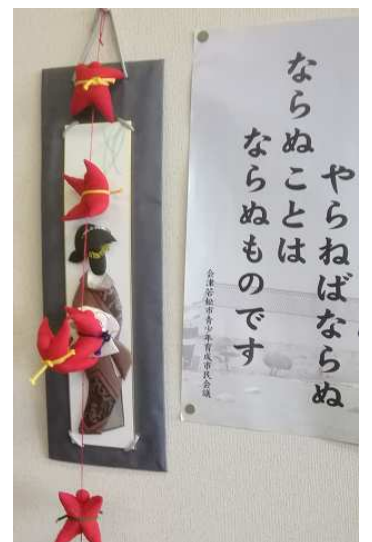 やらねばならぬ
ならぬことは
ならぬものです
会津若松市青少年育成市民会議